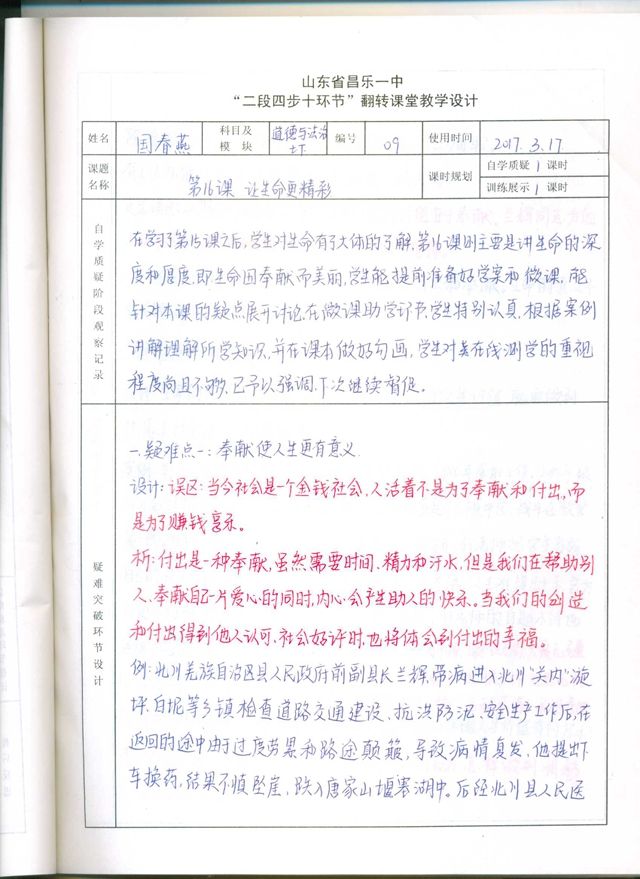 山东省昌乐一中
“二段四步十环节”翻转课堂教学设计
姓名 国春燕 科目及模块 道德与法治 七下 编号 09 使用时间 2017.3.17
课题名称 第16课 让生命更精彩 课时规划 自学质疑 1 课时
训练展示 1 课时
自学质疑阶段观察记录
在学习了第15课之后,学生对生命有了大体的了解,第16课则主要是讲生命的深
度和厚度,即生命因奉献而美丽,学生能提前准备好学案和微课,能
针对本课的疑点展开讨论,在微课助学环节,学生特别认真,根据案例
讲解理解所学知识,并在课本做好勾画,学生对在线测学的重视
程度尚且不够,已予以强调,下次继续督促。
疑难突破环节设计
一.疑难点一:奉献使人生更有意义
设计:误区:当今社会是一个金钱社会,人活着不是为了奉献和付出,而
是为了赚钱享乐。
析:付出是一种奉献,虽然需要时间、精力和汗水,但是我们在帮助别
人、奉献自己一片爱心的同时,内心会产生助人的快乐。当我们的创造
和付出得到他人认可、社会好评时,也将体会到付出的幸福。
例:北川羌族自治区县人民政府前副县长兰辉,带病进入北川“关内”漩
坪、白坭等乡镇检查道路交通建设、抗洪防汛、安全生产工作后,在
返回的途中由于过度劳累和路途颠簸,导致病情复发,他提出下
车换药,结果不慎坠崖,跌入唐家山堰塞湖中。后经北川县人民医